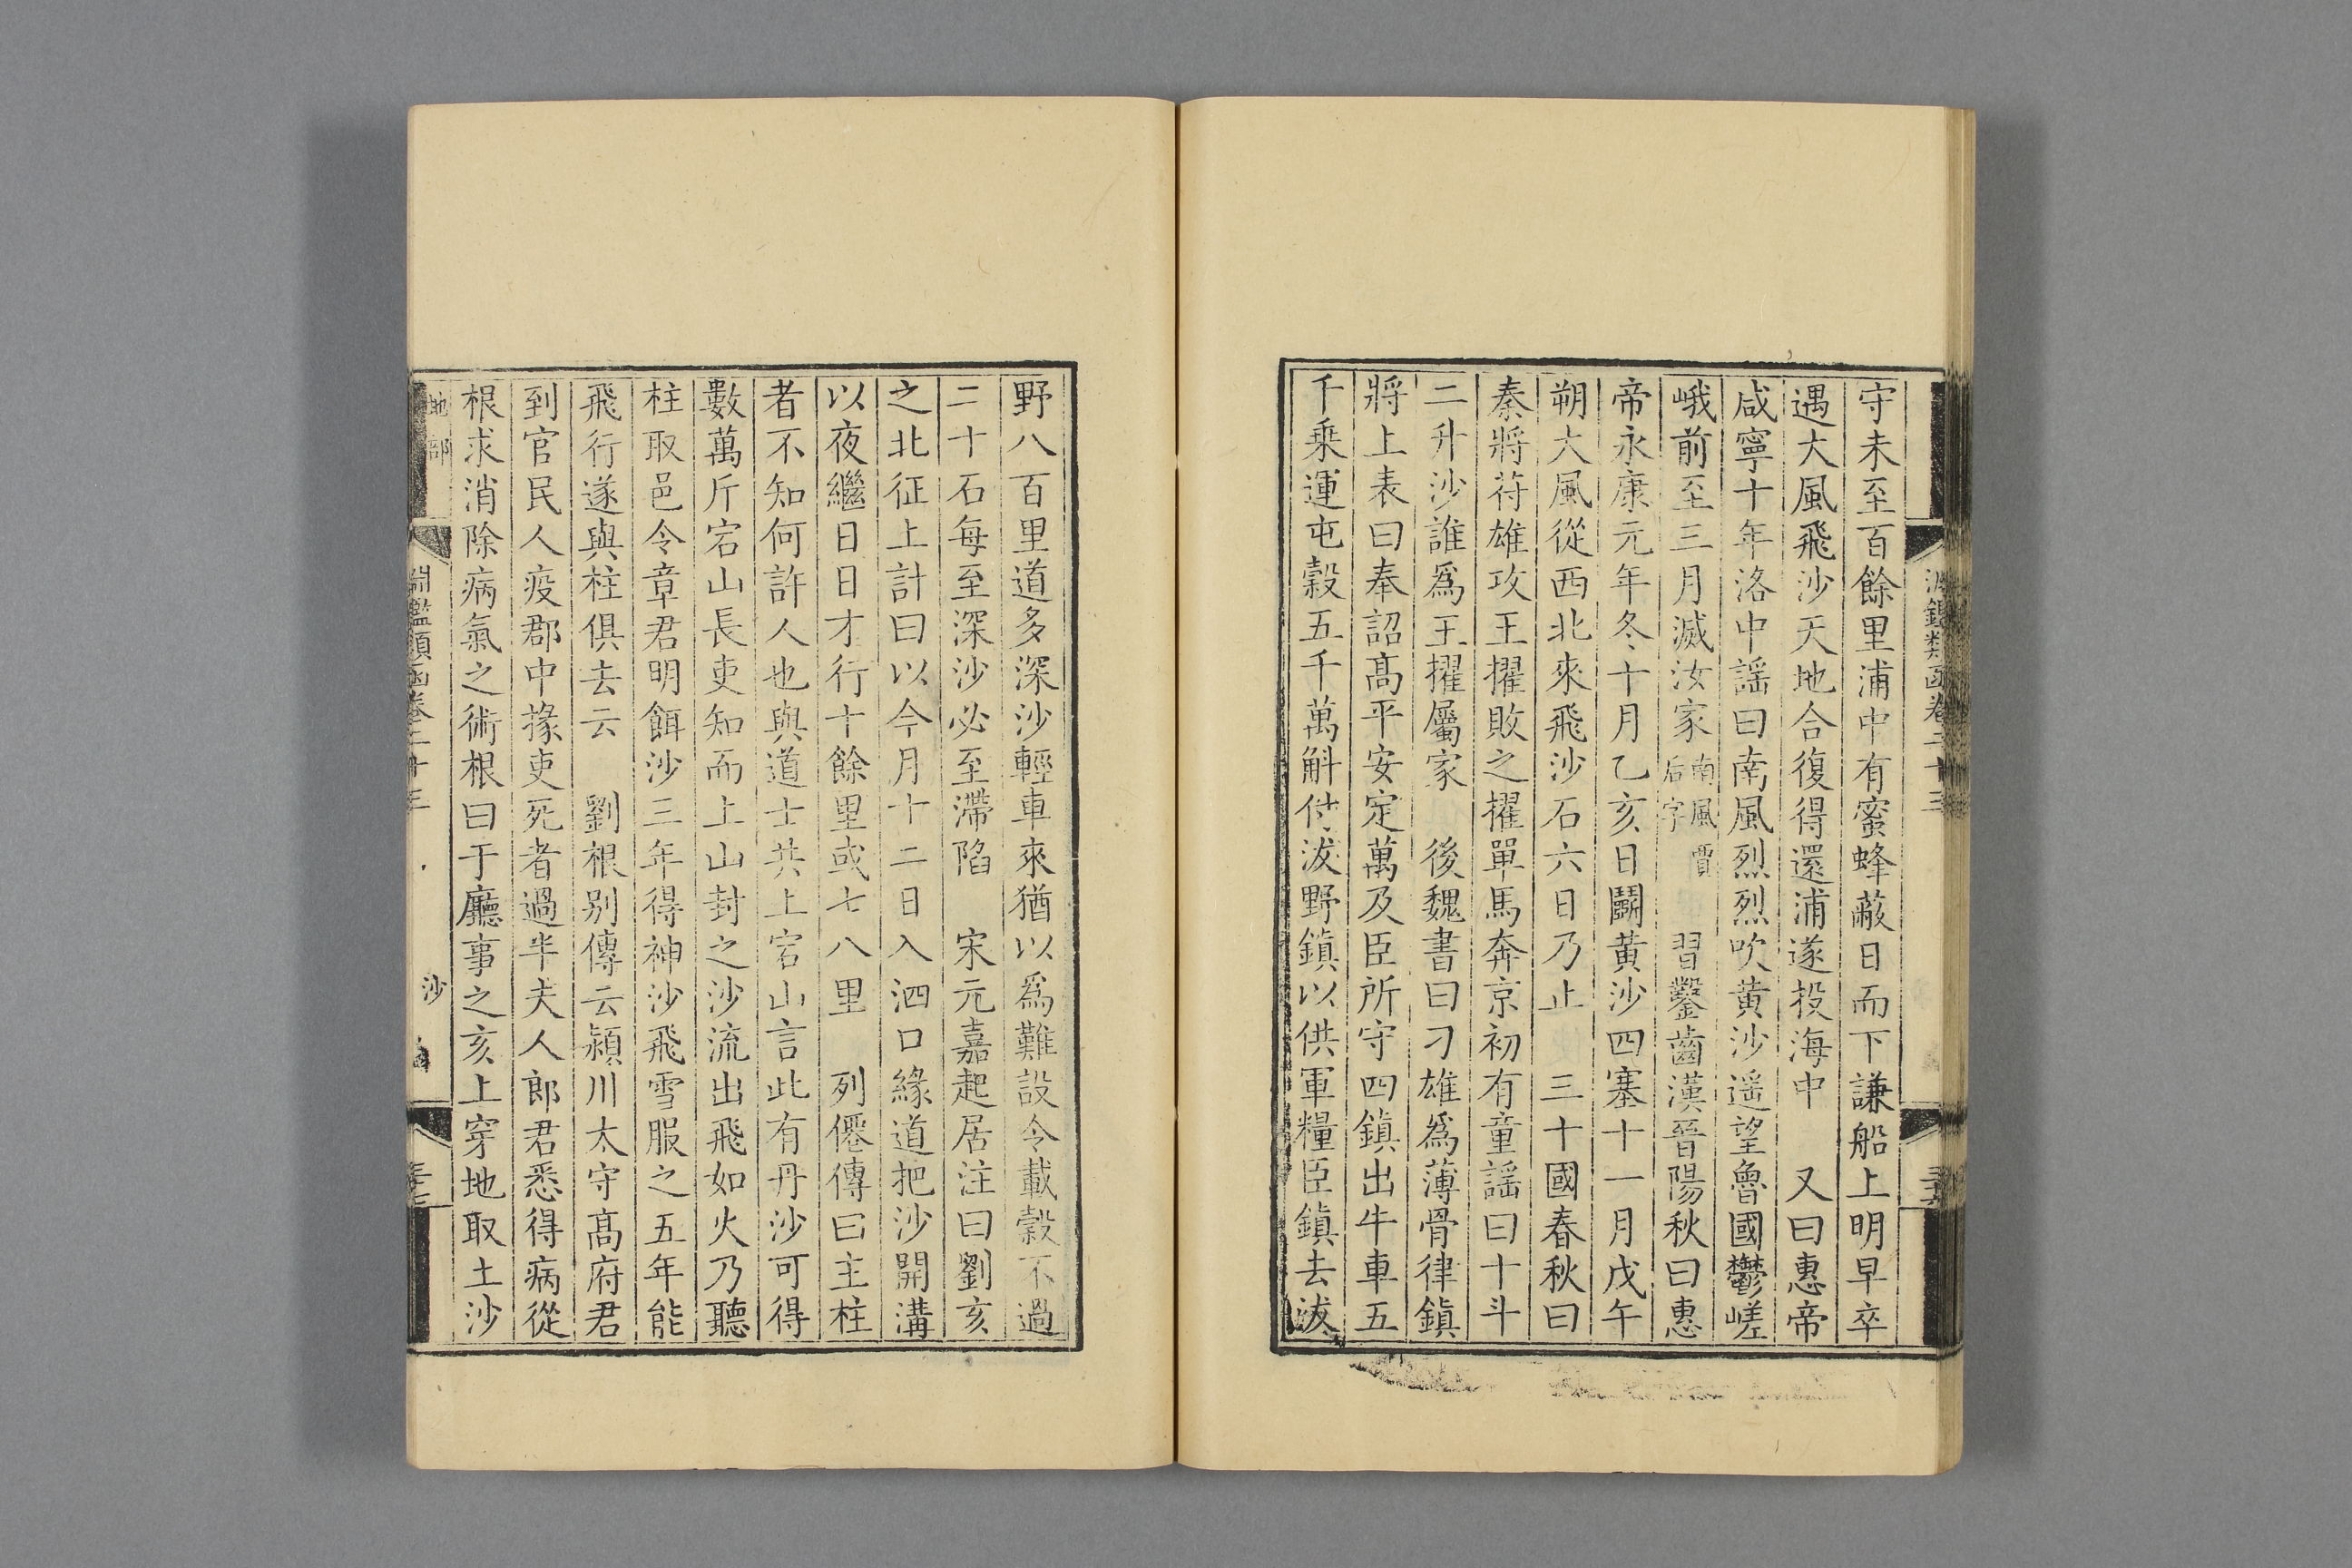 淵鑑類函卷二十三
守未至百餘里浦中有蜜蜂蔽日而下謙船上明早卒
遇大風飛沙天地合復得還浦遂投海中　又曰惠帝
咸寧十年洛中謡曰南風烈烈吹黄沙遥望魯國鬱嵯
峨前至三月滅汝家南風賈后字　習鑿齒漢晉陽秋曰惠
帝永康元年冬十月乙亥日鬭黄沙四塞十一月戊午
朔大風從西北來飛沙石六日乃止　三十國春秋曰
秦將苻雄攻王擢敗之擢單馬奔京初有童謡曰十斗
二升沙誰爲王擢屬家　後魏書曰刁雄爲薄骨律鎮
將上表曰奉詔髙平安定萬及臣所守四鎮出牛車五
千乗運屯穀五千萬斛付沃野鎮以供軍糧臣鎮去沃
野八百里道多深沙輕車來猶以爲難設令載穀不過
二十石每至深沙必至滯陷　宋元嘉起居注曰劉亥
之北征上計曰以今月十二日入泗口緣道把沙開溝
以夜繼日日才行十餘里或七八里　列僊傳曰主柱
者不知何許人也與道士共上宕山言此有丹沙可得
數萬斤宕山長吏知而上山封之沙流出飛如火乃聽
柱取邑令章君明餌沙三年得神沙飛雪服之五年能
飛行遂與柱俱去云　劉根别傳云潁川太守髙府君
到官民人疫郡中掾吏死者過半夫人郎君悉得病從
根求消除病氣之術根曰于廳事之亥上穿地取土沙
地部
淵鑑類函卷二十三
沙